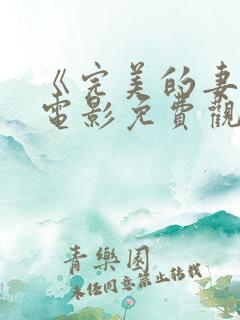 《完美的妻
電影免費觀
青樂園
未经同意禁止转载